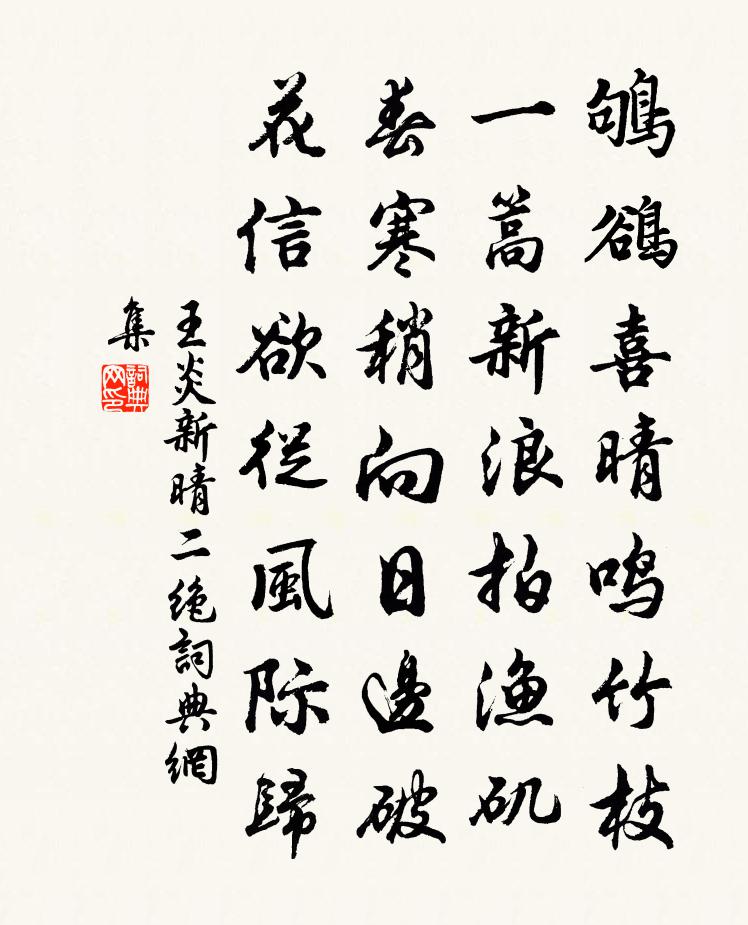 鴝鵒喜晴鳴竹枝
一篙新浪拍漁矶
春寒稍向日邊破
花信欲從風际歸
王炎新晴二絶詞典網
集
詞典
网印